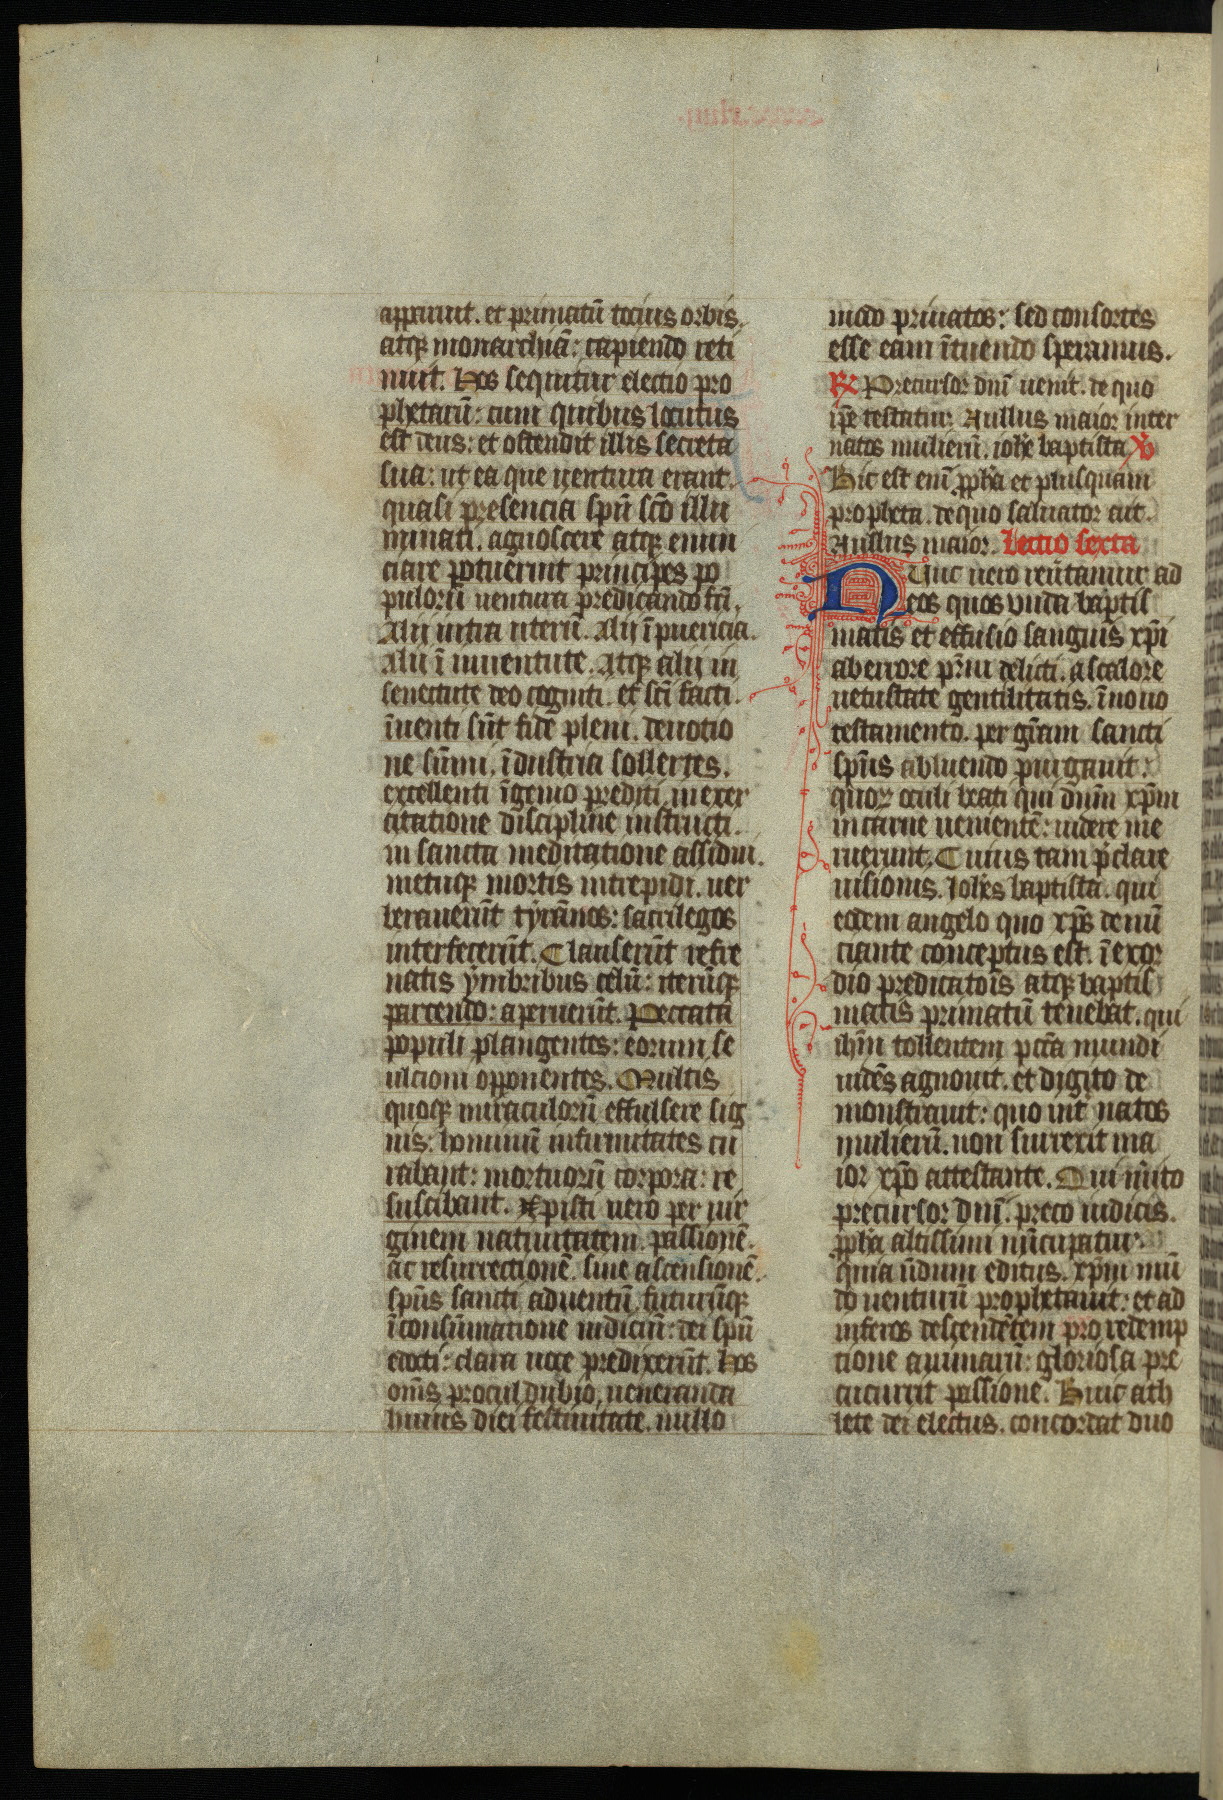 apparuit. et primatū tocius orbis
atqꝫ monarchiā: capiendo reti
nuit. Hos sequitur electio pro
phetarū: cum quibus locutus
est deus: et ostendit illis secreta
sua: ut ea que uentura erant.
quasi presencia spū sc̄o illu
minati. agnoscere atqꝫ enun
ciare potuerint principes po
pulorū uentura predicando
Alij intra uterū. Alij ī puericia.
Alij ī iuuentute. Atqꝫ alij in
senectute deo cogniti. et sc̄i facti.
īuenti sūt fide pleni. deuotio
ne sūmi. īdustria sollertes.
excellenti īgenio prediti in exer
citatione discipline instructi.
in sancta meditatione assidui.
metuqꝫ mortis intrepidi. uer
berauerūt tyrānos: sacrilegos
interfecerūt. Clauserūt refre
natis ymbribus celū: iterūqꝫ
parcendo: aperuerūt. Peccata
populi plangentes: eorum se
ulcioni opponentes. Multis
quoqꝫ miraculorū effulsere sig
nis: hominū infirmitates cu
rabant: mortuorū corpora: re
suscitabant. Xp̄isti uero per uir
ginem natiuitatem. passionē.
ac resurrectionē. siue ascensionē.
sp̄us sancti aduentū. futurūqꝫ
ī consūmatione iudiciū: dei spū
edocti: clara uoce predixerūt. Hos
om̄s procul dubio. ueneranda
huius diei festiuitate. nullo
modo priuatos: sed consortes
esse eam ītuendo speramus.
℞ Precursor dn̄i uenit. de quo
ip̄e testatur Nullus maior inter
natos mulierū. ioh̄e baptista ℣
Hic est eni ꝓph̄a et plusquam
propheta. de quo saluator ait.
Nullus maior. Lectio sexta
Nunc uero reuertamur ad
eos quos unda baptis
matis et effusio sanguis xp̄i
ab errore p̄mi delicti. a scelore
uetustate gentilitatis. ī nouo
testamento. per gr̄am sancti
sp̄us abluendo purgauit.
quoꝝ oculi beati qui dn̄m xp̄m
in carne uenientē: uidere me
ruerunt. Cuius tam p̄clare
uisionis. Ioh̄es baptista. qui
eodem angelo quo xp̄s denū
ciante conceptus est. ī exor
dio predicatōis atqꝫ baptis
matis primatū tenebat. qui
ih̄m tollentem pcc̄a mundi
uidēs agnouit. et digito de
monstrauit: quo int̄ natos
mulierū. non surrexit ma
ior xp̄o attestante. Qui m̄ito
precursor dn̄i. preco iudicis.
ꝓph̄a altissimi nūcupatur.
quia editus. xp̄m mū
do uenturū prophetauit: et ad
inferos descendētem pro redemp
tione animarū: gloriosa pre
cucurrit passione. Huic ath
lete dei electus. concordat duo